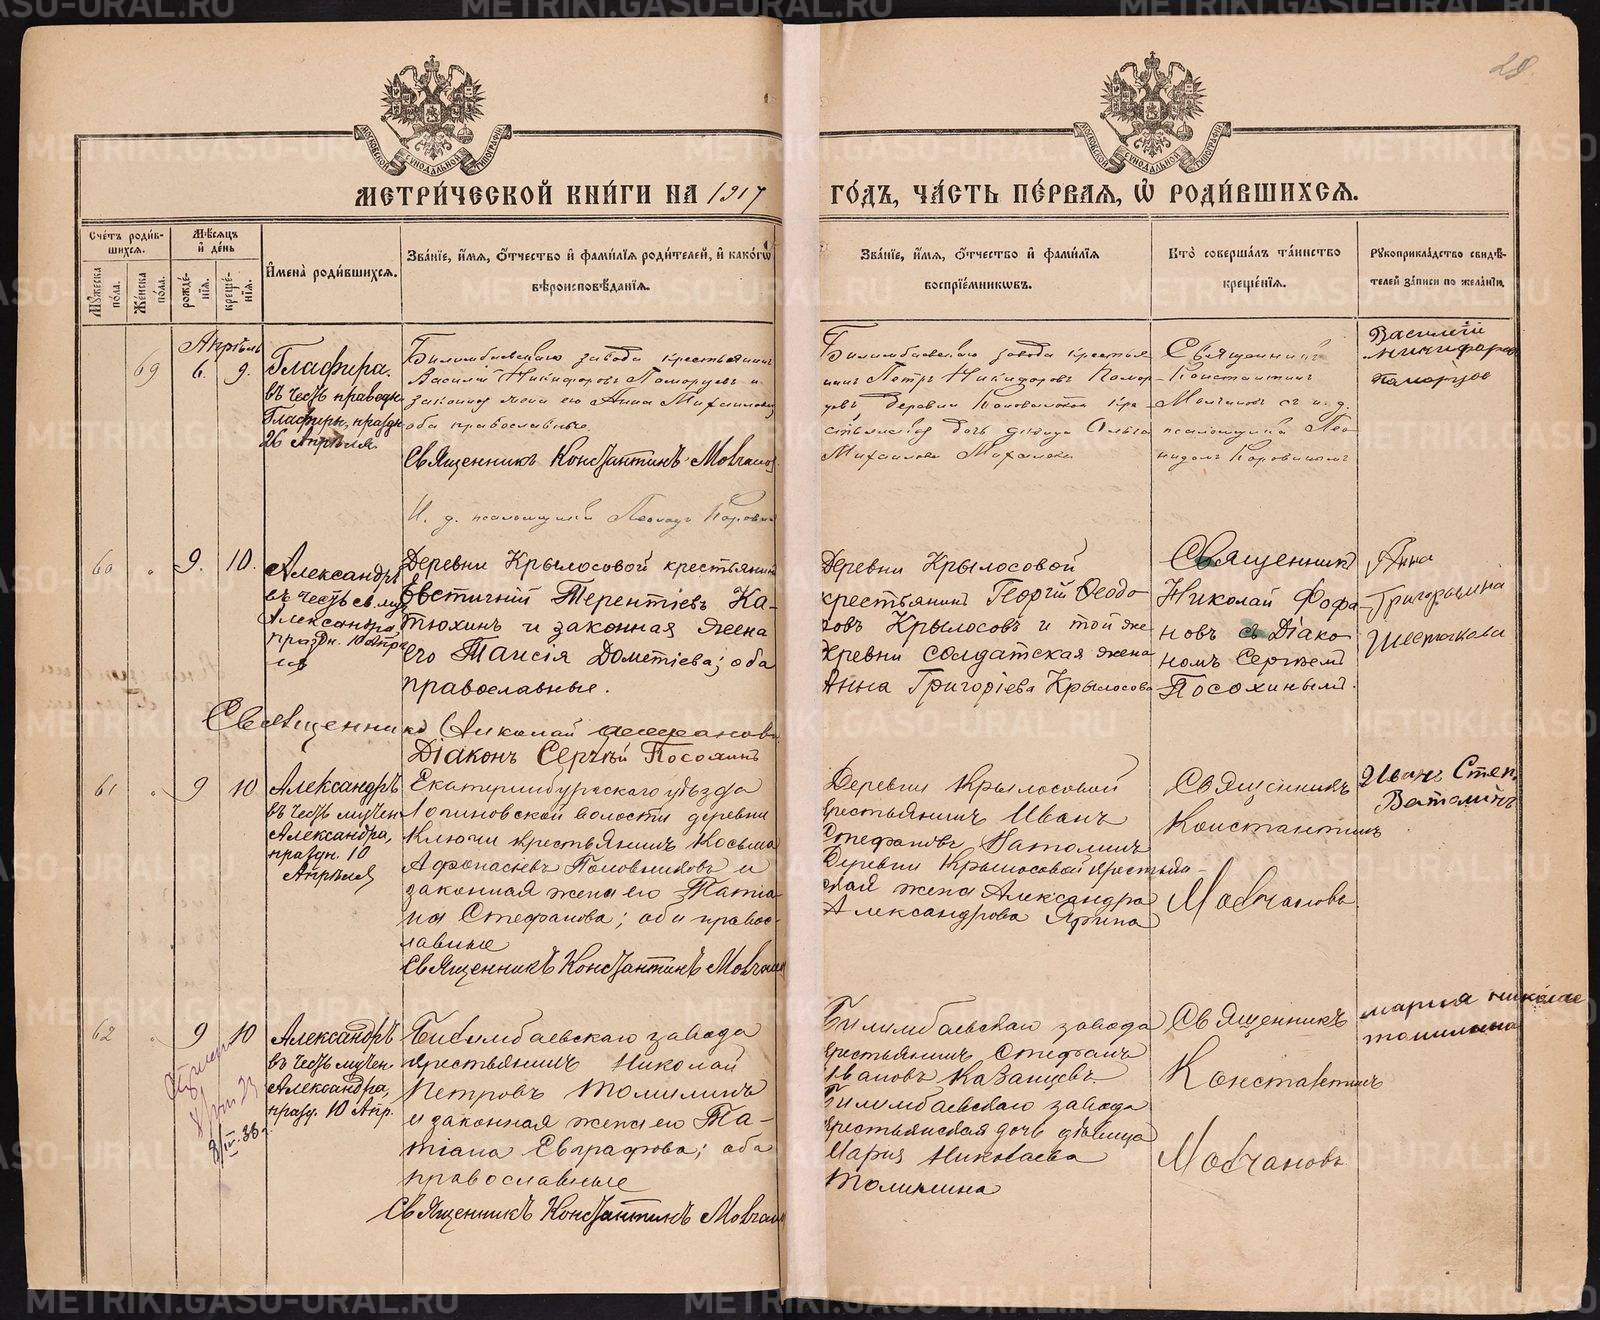 28.
МОСКОВСКОЙ СѴНОДАЛЬНОЙ ТИПОГРАФІИ
МОСКОВСКОЙ СѴНОДАЛЬНОЙ ТИПОГРАФІИ
МЕТРИ́ЧЕСКОЙ КНИ́ГИ НА 1917
ГО́ДЪ, ЧА́СТЬ ПЕ́РВАЯ, Ѽ РОДИ́ВШИХСЯ.
Сче́тъ роди́в-
шихся.
Мꙋ́жеска
по́ла.
Же́нска
по́ла.
Мѣ́сяцъ
и҆ де́нь
рожде́-
нїя.
креще́-
нїя.
И҆мена̀ роди́вшихся.
Зва́нїе, и҆́мя, ѻ҆́тчество и҆ фами́лїѧ роди́телей, и҆ како́гѡ
вѣроисповѣ́данїя.
Зва́нїе, и҆́мя, ѻ҆́тчество и҆ фами́лїя
воспрїе́мникѡвъ.
Кто̀ соверша́лъ та́инство
креще́нїя.
Рꙋкоприкла́дство свидѣ́-
телей за́писи по жела́нїю.
Апрѣль
69
6.
9.
Глафира.
въ честь праведн.
Глафиры, праздн.
26 Апрѣля
Билимбаевскаго завода крестьянинъ
Василій Никифоровъ Поморцевъ и
законная жена его Анна Михаилова
оба православные.
Священникъ Константинъ Мовчанов
И. д. псаломщика Леонидъ Коровин
Билимбаевскаго завода крестья
нинъ Петръ Никифоровъ Помор
цевъ деревни Коноваловой кре
стьянская дочь девица Ольга
Михаилова
Священникъ
Константинъ
Мовчановъ съ и. д.
псаломщика Лео
нидомъ Коровинымъ
Василий
Никифоров
Паморцов
60
9.
10.
Александръ
въ честь св. муч.
Александра
праздн. 10 Апрѣ
ля
Деревни Крылосовой крестьянинъ
Евстихій Терентіевъ Ка-
тюхинъ и законная жена
его Таисія Дометіева; оба
православные.
Священникъ Николай Фофановъ
Діаконъ Сергѣй Посохинъ
Деревни Крылосовой
крестьянинъ Георгій Ѳеодо-
ровъ Крылосовъ и той же
деревни солдатская жена
Анна Григоріева Крылосова
Священникъ
Николай Фофа
новъ съ Діако
номъ Сергѣемъ
Посохинымъ.
Анна
Григорьевна
61
9
10
Александръ
въ честь мучен.
Александра,
праздн. 10
Апрѣля
Екатеринбургскаго уѣзда
волости деревни
Ключи крестьянинъ Косьма
Афонасіевъ Половниковъ и
законная жена его Татіа
на Стефанова; оба право-
славные
Священникъ Константинъ Мовчанов
Деревни Крылосовой
крестьянинъ Иванъ
Стефановъ Ватолинъ
Деревни Крылосовой крестьян-
ская жена Александра
Александрова Ярина
Священникъ
Константинъ
Мовчановъ.
Иванъ Степ.
Ватолинъ
62
9
10
Александръ
въ честь мучен.
Александра,
празд. 10 Апр.
8/IV.38г.
Билимбаевскаго завода
крестьянинъ Николай
Петровъ Томилинъ
и законная жена его Та-
тіана Евграфова; оба
православные
Священникъ Константинъ Мовчанов
Билимбаевскаго завода
крестьянинъ Стефанъ
Ивановъ Казанцевъ.
Билимбаевскаго завода
крестьянская дочь дѣвица
Мария Николаева
Томилина
Священникъ
Константинъ
Мовчановъ
Мария Николае
Томилина
METRIKI.GASO-URAL.RU